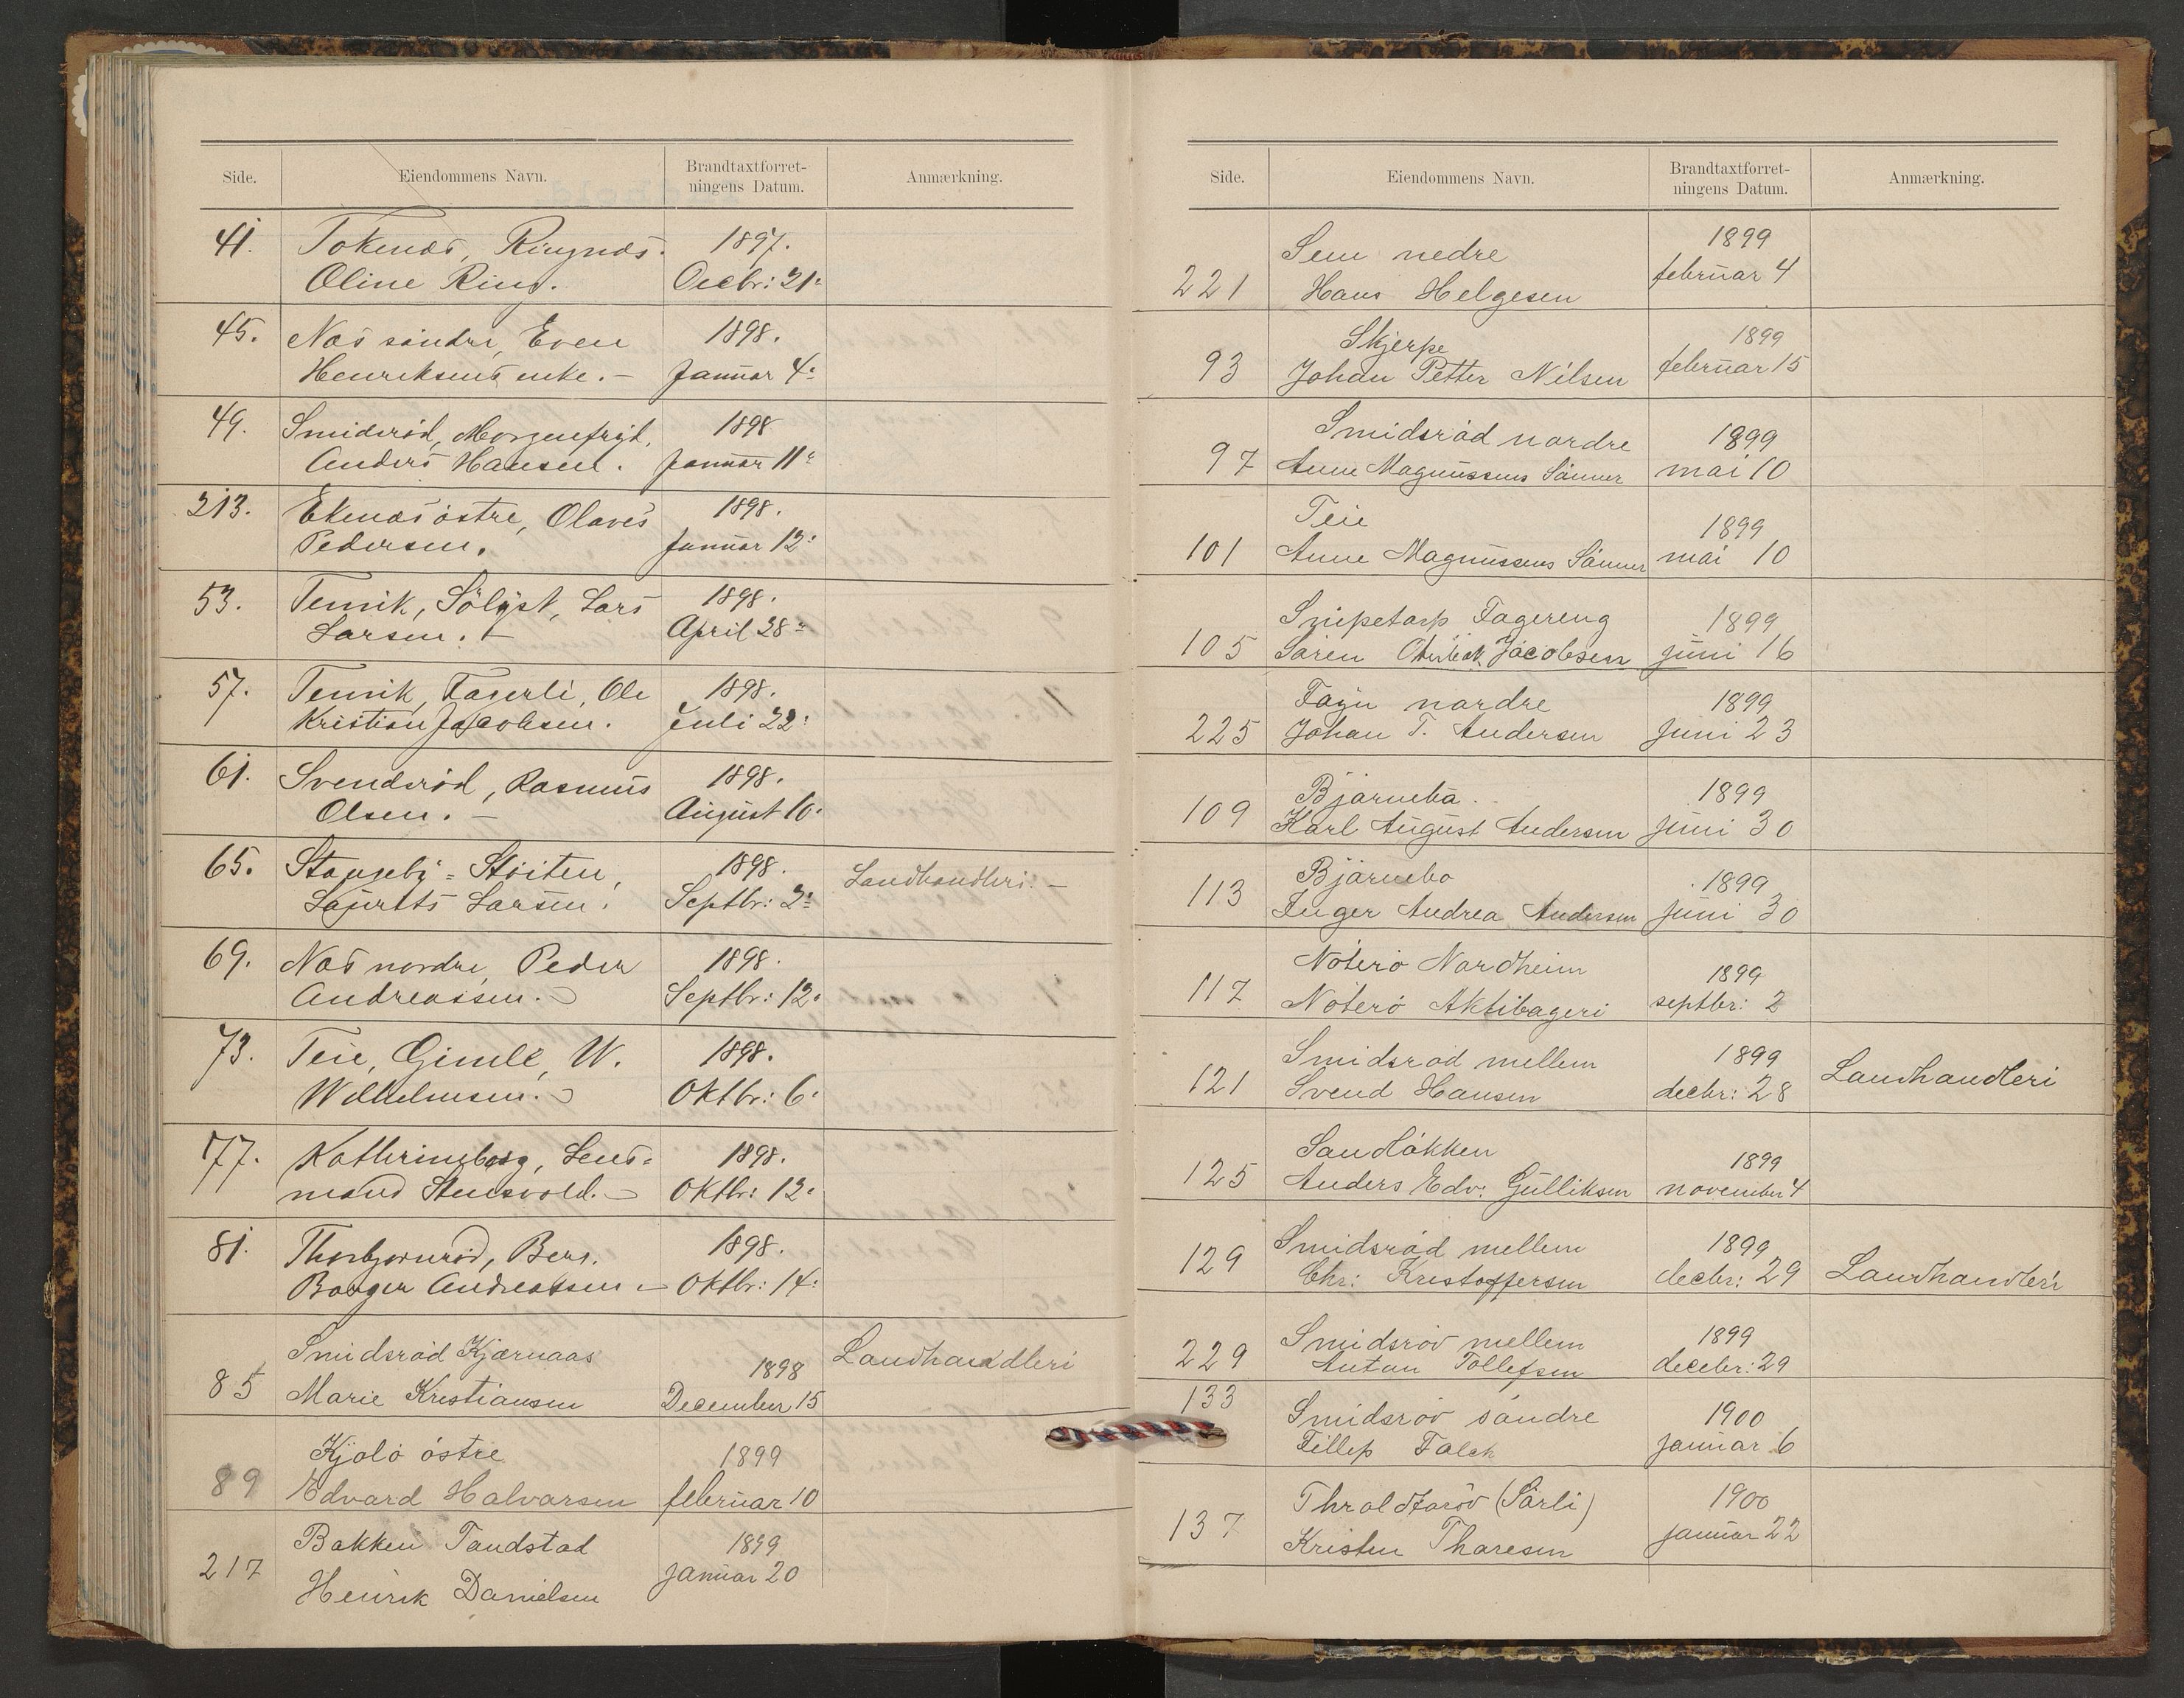 Side. Eiendommens Navn. Brandtaxtforret-
ningens Datum. Anmærkning.
41. Tokenæs, Ringnæs. 1897.
Oline Ring. Decbr: 21:
45. Næs söndre, Even 1898.
Henriksens enke. — Januar 4:
49. Smidsröd, Morgenfryd, 1898
Anders Hansen. Januar 11:
213. Ekenæs östre, Olaves 1898.
Pedersen. Januar 12:
53. Temik, Sölyst, Lars 1898.
Larsen. — April 28:
57. Temik, Fagerli, Ole 1898.
Kristian Jacobsen. Juli 22:
61. Svendsröd, Rasmus 1898.
Olsen. — August 10.
65. Stangeby = Stöiten, 1898. Landhandleri. —
Laurits Larsen. Septbr: 2:
69. Næs nordre, Peder 1898.
Andreassen. Septbr: 12.
73. Teie, Gimle, W. 1898.
Wilhelmsen. Oktbr: 6.
77. Kathrineborg, Lens- 1898.
mand Stensvold. Oktbr: 12.
81. Thorbjörnröd, Bern. 1898.
Borger Andreassen — Oktbr: 14:
Smidsröd Kjærnaas Landhandleri
85 Marie Kristiansen 1898
December 15
Kjölö östre 1899
89 Edvard Halvorsen februar 10
Bakken Tandstad 1899
217 Henrik Danielsen januar 20
Side. Eiendommens Navn. Brandtaxtforret-
ningens Datum. Anmærkning.
Sem nedre 1899
221 Hans Helgesen februar 4
Skjerpe 1899
93 Johan Petter Nilsen februar 15
Smidsröd nordre 1899
97 Anne Magnussens Sönner mai 10
Teie 1899
101 Anne Magnussens Sönner mai 10
Snipetorp Fagereng 1899
105 Sören Jacobsen juni 16
Föyn nordre 1899
225 Johan T. Andersen juni 23
Björnebo 1899
109 Karl August Andersen juni 30
Björnebo 1899
113 Inger Andrea Andersen juni 30
Nöterö Nordheim 1899
117 Nöterö Aktibageri septbr: 2
Smidsröd mellem 1899
121 Svend Hansen decbr: 28 Landhandleri
Sandlökken 1899
125 Anders Edv: Gulliksen november 4
Smidsröd mellem 1899
129 Chr: Kristoffersen decbr: 29 Landhandleri
Smidsröd mellem 1899
229 Anton Tollefsen decebr: 29
133 Smidsröd söndre 1900
Fillip Falck januar 6
137 (Sörli) 1900
Kristen Thoresen januar 22